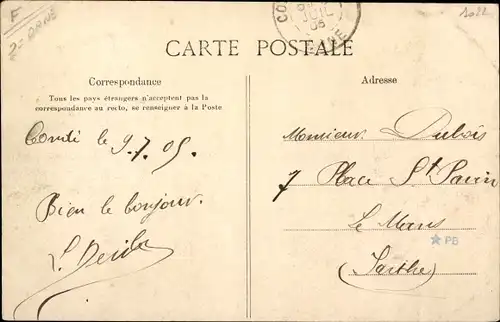 F
2 - ORNE
1022
CARTE POSTALE
Correspondance
Adresse
Tous les pays étrangers n'acceptent pas la
correspondance au recto, se renseigner à la Poste
Condé le 9.7.05.
Bien le bonjour.
Monsieur Dubois
7 Place St Pavin
Le Mans
(Sarthe)
★ PB